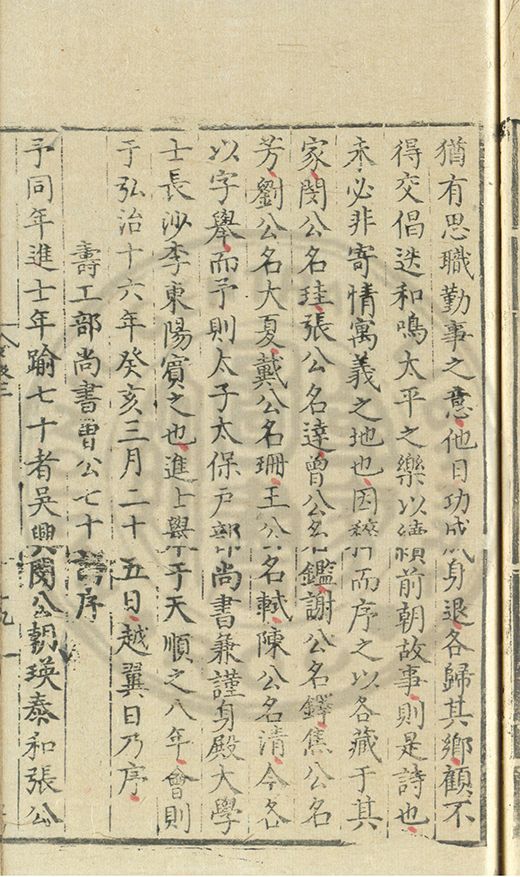 猶有思職勤事之意他日功成身退各歸其鄉顧不
得交倡迭和鳴太平之樂以續前朝故事則是詩也
未必非寄情寓義之地也因萃而序之以各藏于其
家閔公名珪張公名達曾公名鑑謝公名鐸焦公名
芳劉公名大夏戴公名珊王公名軾陳公名清今各
以字舉而予則太子太保戶部尚書兼謹身殿大學
士長沙李東陽賓之也進士舉于天順之八年會則
于弘治十六年癸亥三月二十五日越翼日乃序
壽工部尚書曾公七十詩序
予同年進士年踰七十者吳興閔公朝瑛泰和張公